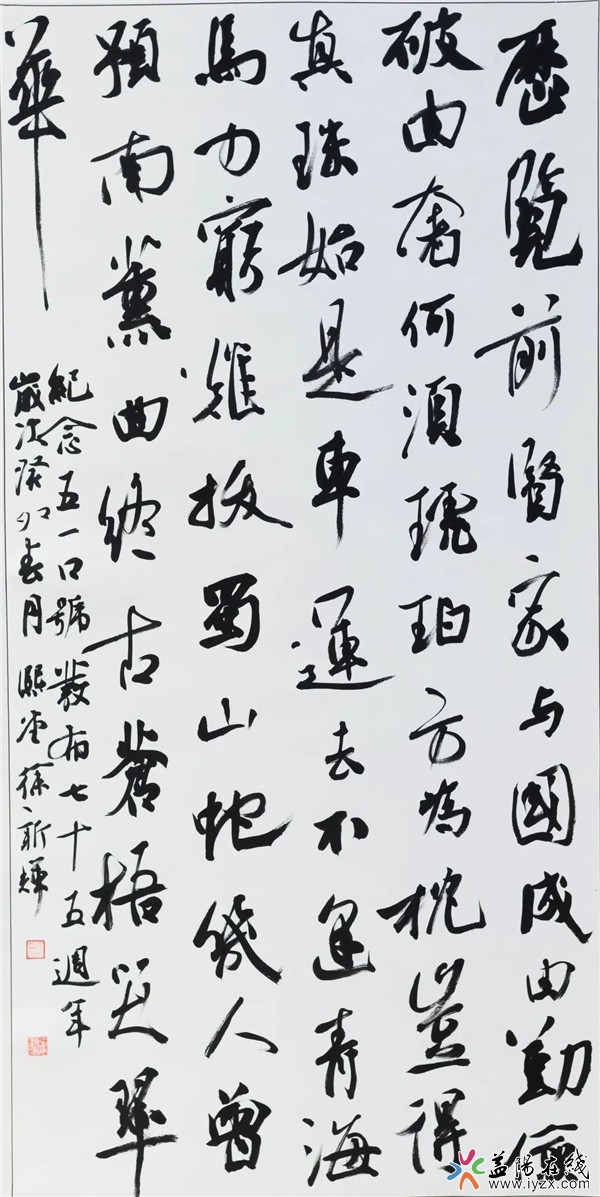 歷覽前賢家与國成由勤儉
破由奢何須琥珀方為枕豈得
真珠始是車運去不逢青海
馬力窮難拔蜀山虵幾人曾
預南薰曲終古蒼梧哭翠
華
紀念五一口號發布七十五週年
歲次癸卯春月熙堂徐新輝
益阳在线
www.iyzx.com